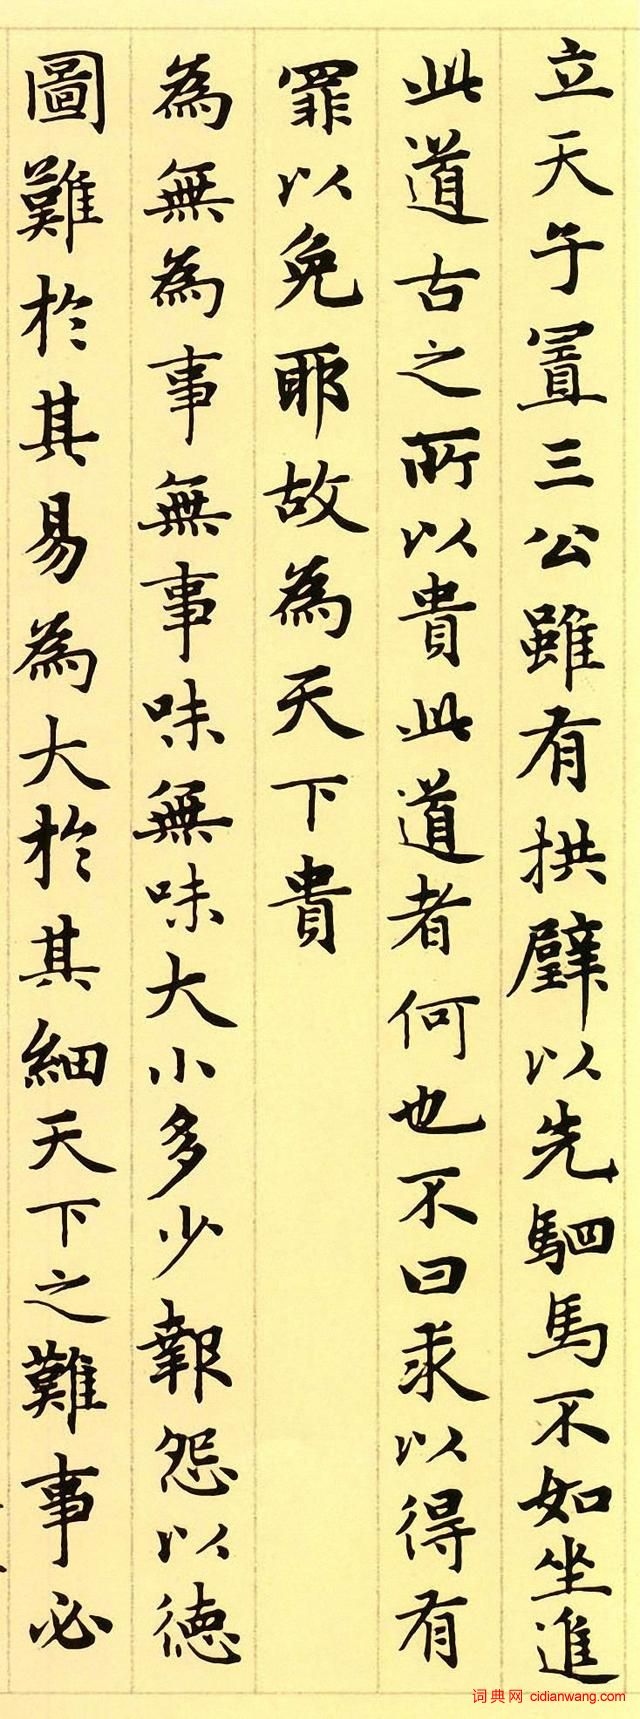 立天子置三公雖有拱璧以先駟馬不如坐進
此道古之所以貴此道者何也不曰求以得有
罪以免耶故為天下貴
為無為事無事味無味大小多少報怨以徳
圖難於其易為大於其細天下之難事必
词典网 cidianwang.com